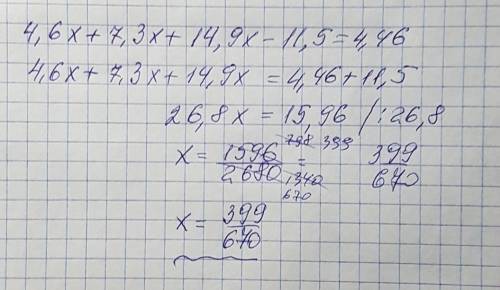 4,6x + 7,3x + 14,9x - 11,5 = 4,46
4,6x + 7,3x + 14,9x = 4,46 + 11,5
26,8x = 15,96 / : 26,8
x = 1596/2680 798 399 1340 670 = 399/670
x = 399/670